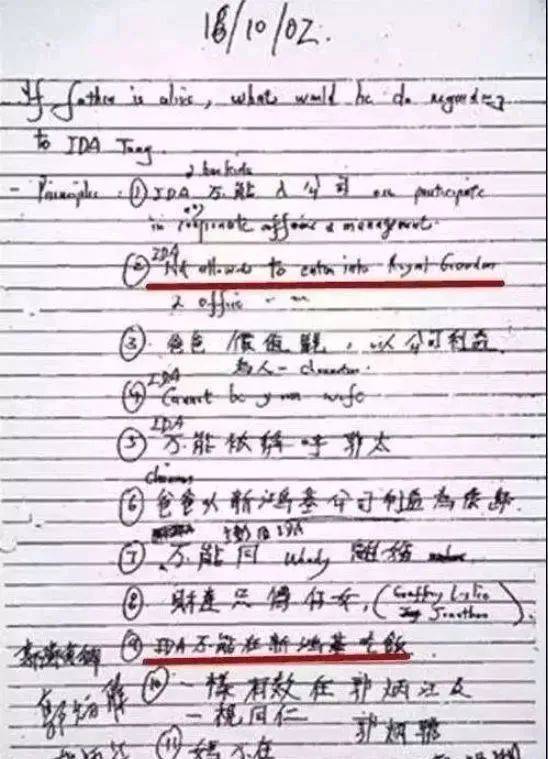 18/10/02.
If father is alive, what would he do regarding
to IDA Tang
- Principles: ① IDA 不能入公司 or participate
in any corporate affairs & management.
② IDA Not allowed to enter into Royal Garden
& office
③ 爸爸價值觀，以公司利益
為人 - character.
④ IDA Cannot be your wife
⑤ IDA 不能被稱呼郭太
⑥ 爸爸以新鴻基公司利益為
⑦ 不能同 Wendy 離婚
⑧ 財產只傳仔女, (Geoffrey, Leslie
Jonathan).
⑨ IDA 不能在新鴻基吃飯
⑩ 一樣有效在郭炳江及
一視同仁 郭炳聯
⑪ 不在